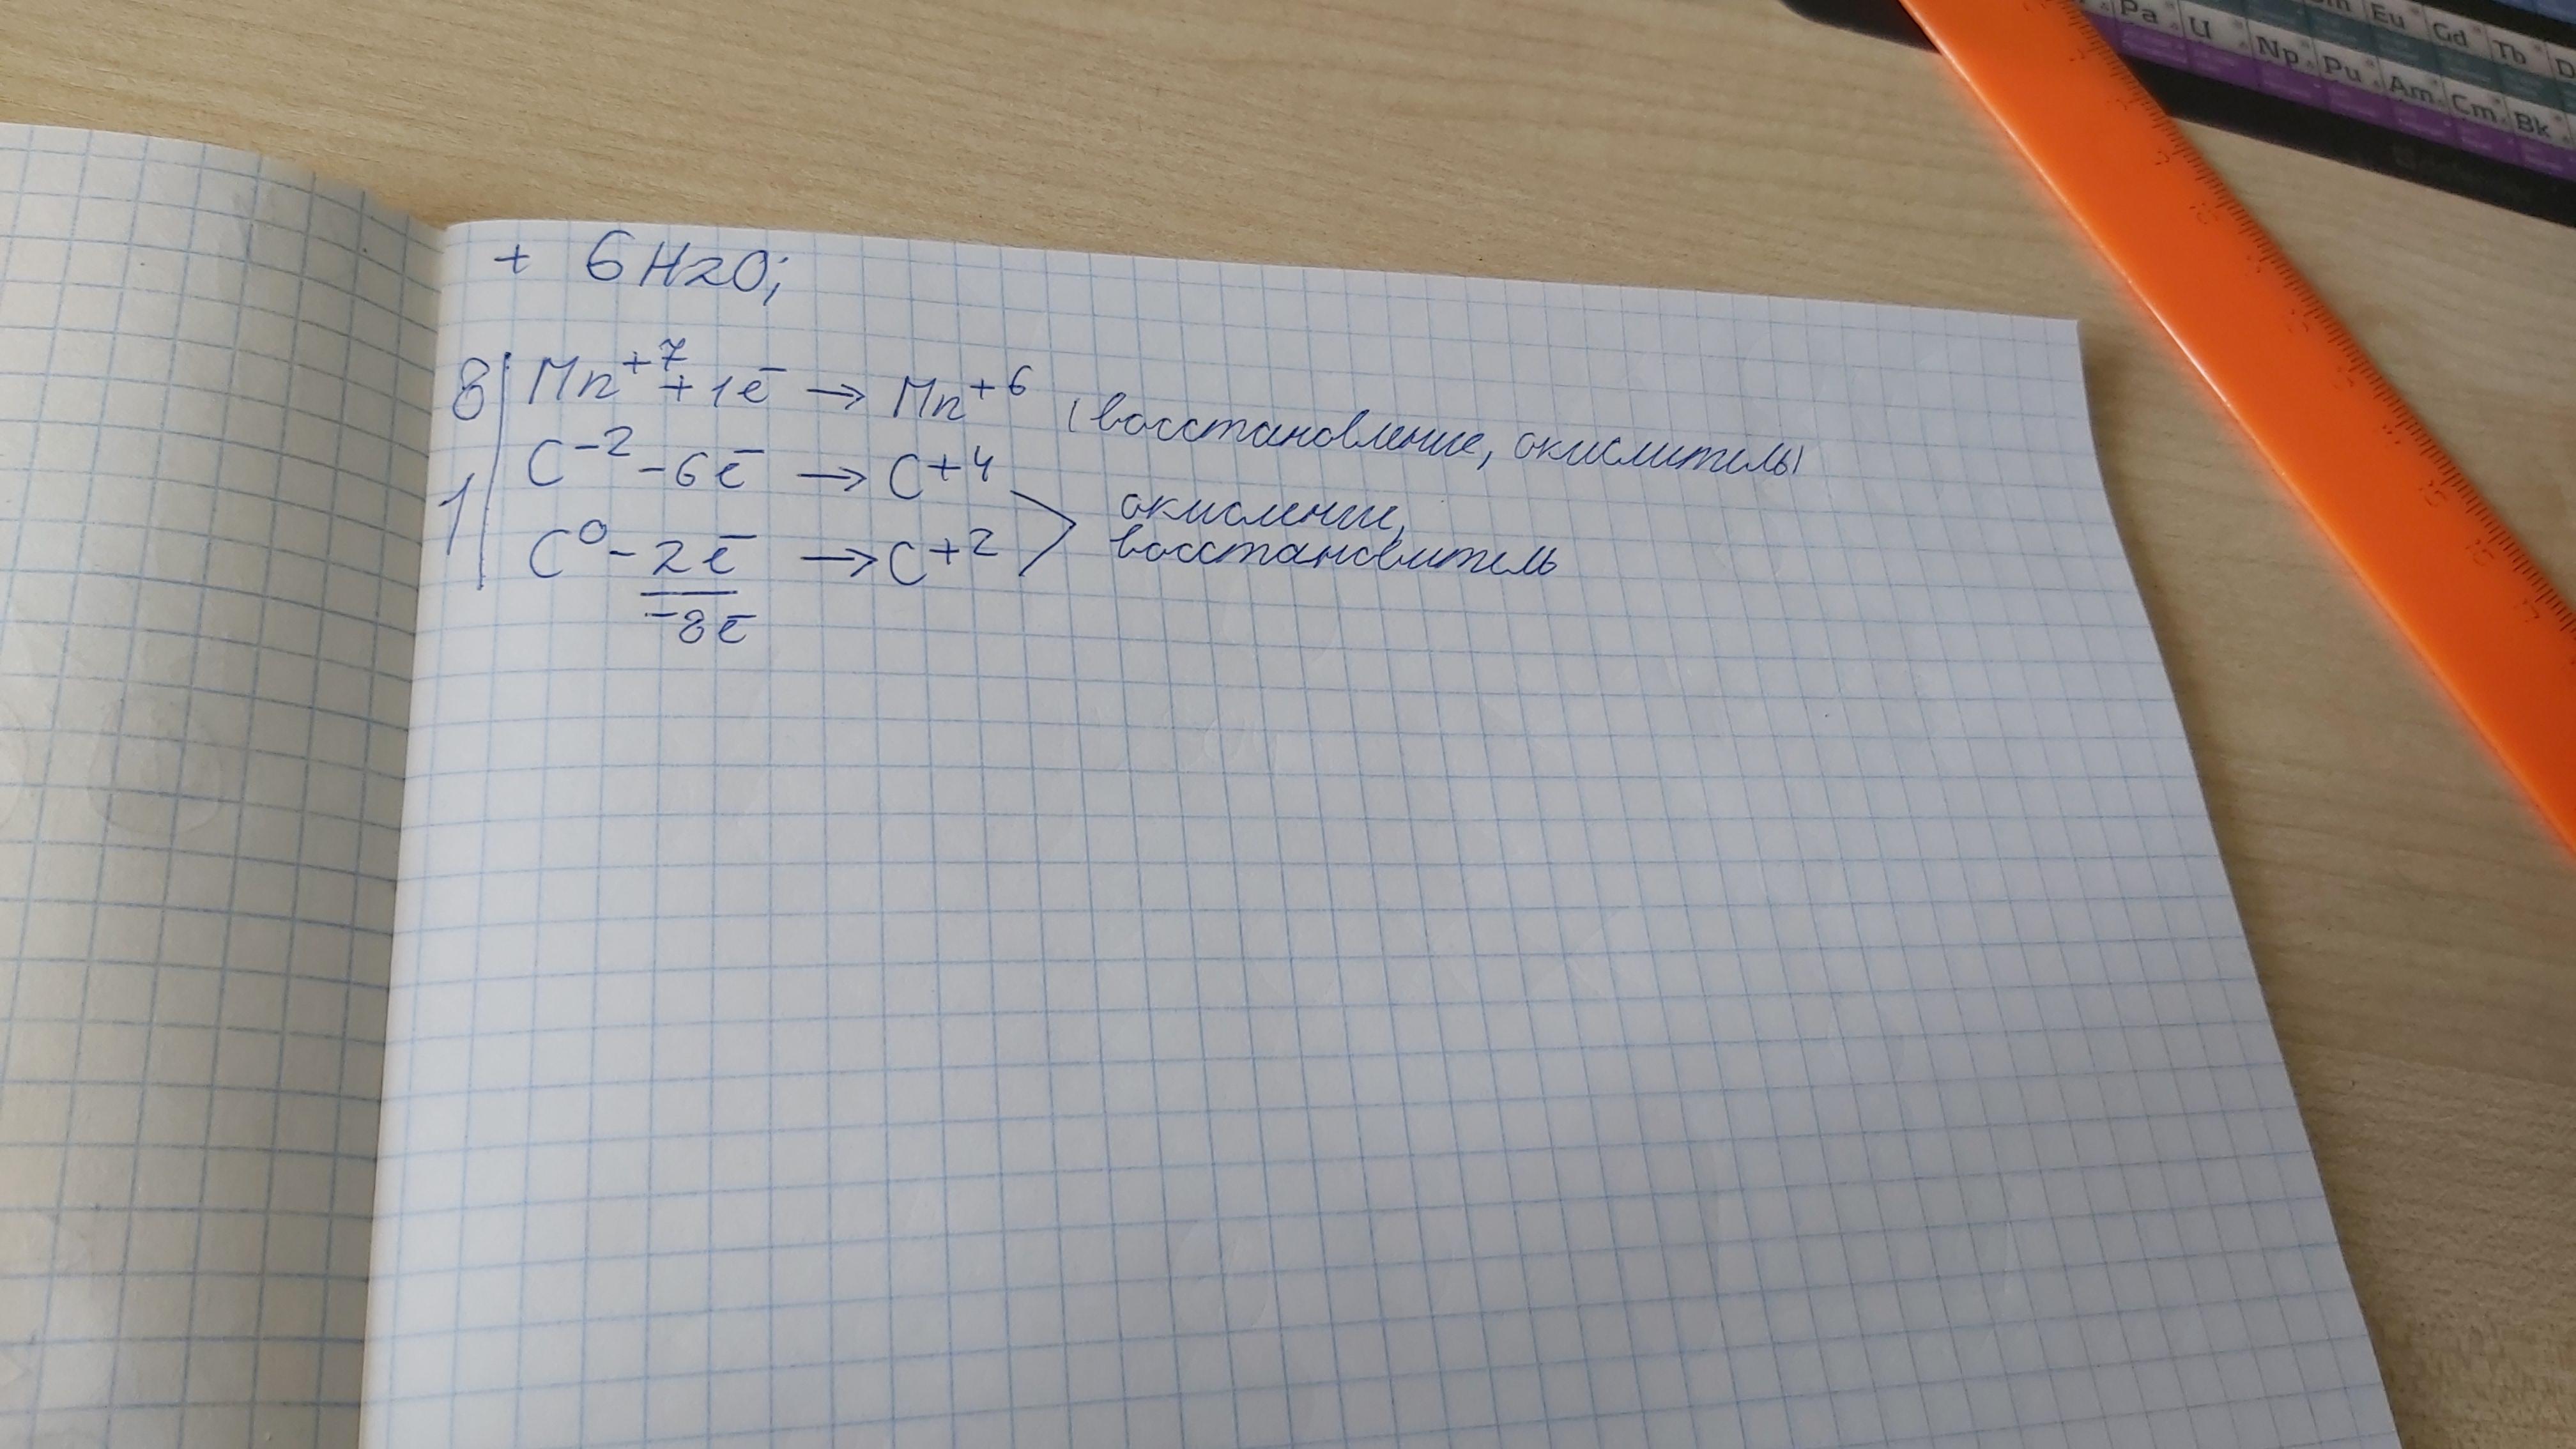 Pa U Np Pu Am Cm Bk
Eu Gd Tb
+ 6H2O;
8 | Mn+7 + 1e̅ → Mn+6 (восстановление, окислитель)
1 | C-2 - 6e̅ → C+4
C0 - 2e̅ → C+2
окисление,
восстановитель
-8e̅